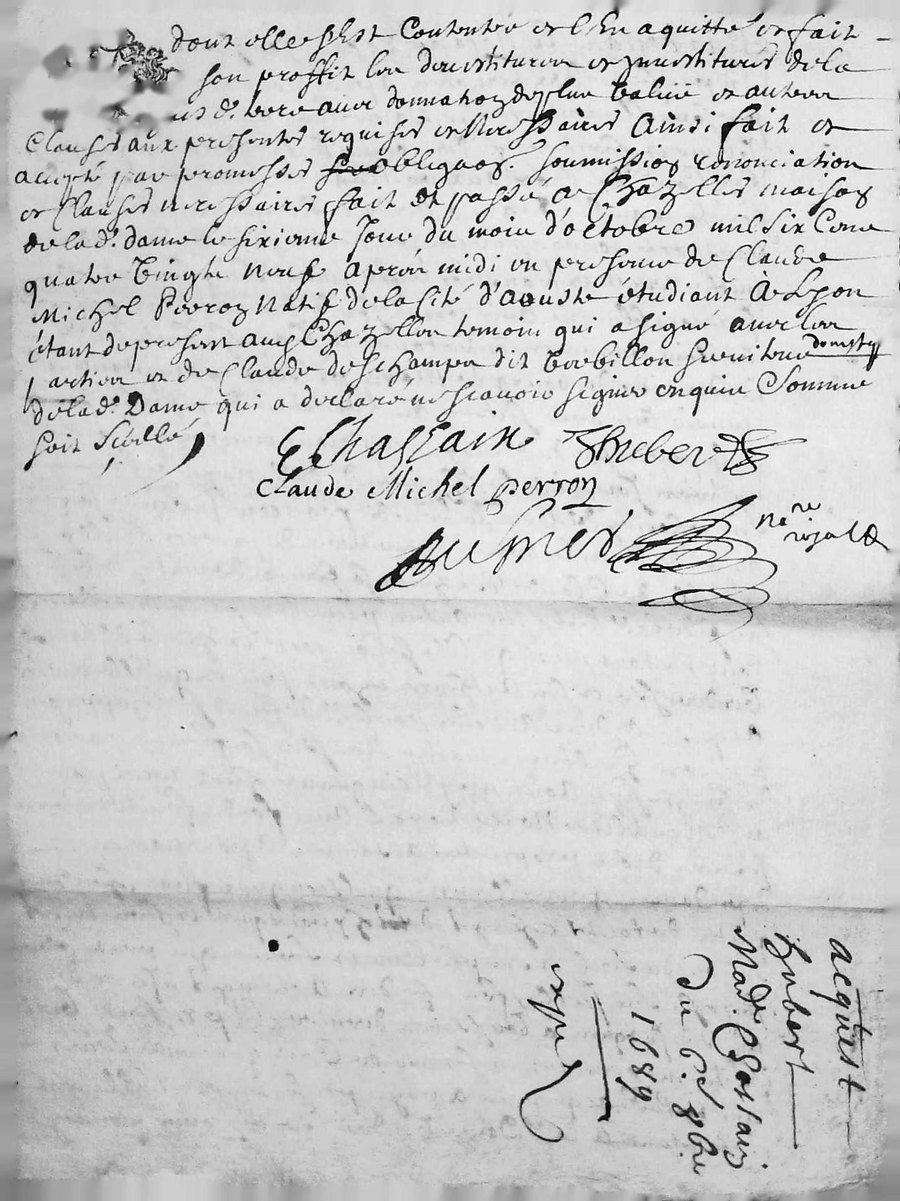 dont elle s'Est Contentée et l'En aquitte et fait
son proffit les devestitures et investitures de la
d. terre avec donnation de plus value et autres
Clauses aux presentes requises et Necessaires Ainsi fait et
accepté par promesses obligaõn. soumission renonciation
et Clauses necessaires fait et passé a Chazelles maison
de la d. dame le sixieme Jour du mois d'octobre mil six Cent
quatre vingts neuf apres midi en presence de Claude
Michel Perron Natif de la Cité d'aouste étudiant A Lyon
étant de present aud Chazelles temoin qui a signé avec les
parties et de Claude deschamps dit serviteur domestiq
de la d. Dame qui a declaré ne scavoir signer enquis Somme
soit Scellé
C Chassain Thueber
Claude Michel perron
nore
royal
acquest
hubert
Made. Chassain
Du 6e. 8bre
1689